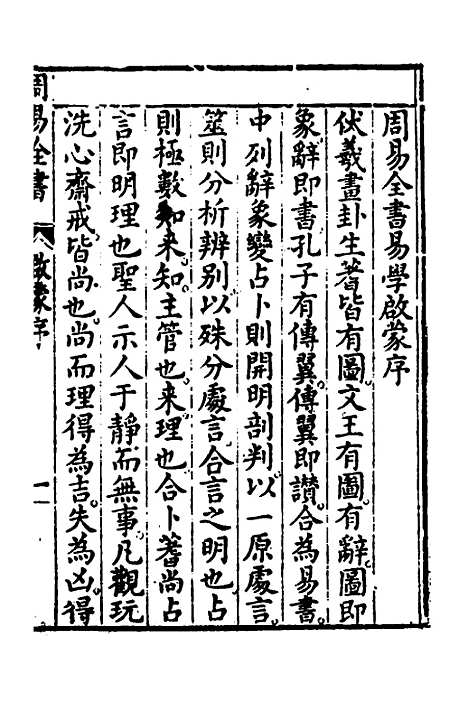 周易全書易學啟蒙序
伏羲畫卦生蓍皆有圖。文王有圖有辭。圖即
象辭即書。孔子有傳翼。傳翼即讚。合為易書。
中列辭象變占。卜則開明剖判以一原處言。
筮則分析辨別以殊分處言。合言之明也。占
則極數知来。知主管也。来理也。合卜蓍尚占
言即明理也。聖人示人于靜而無事。凡觀玩
洗心齋戒皆尚也。尚而理得為吉。失為凶。得
周易全書 啟蒙序 一